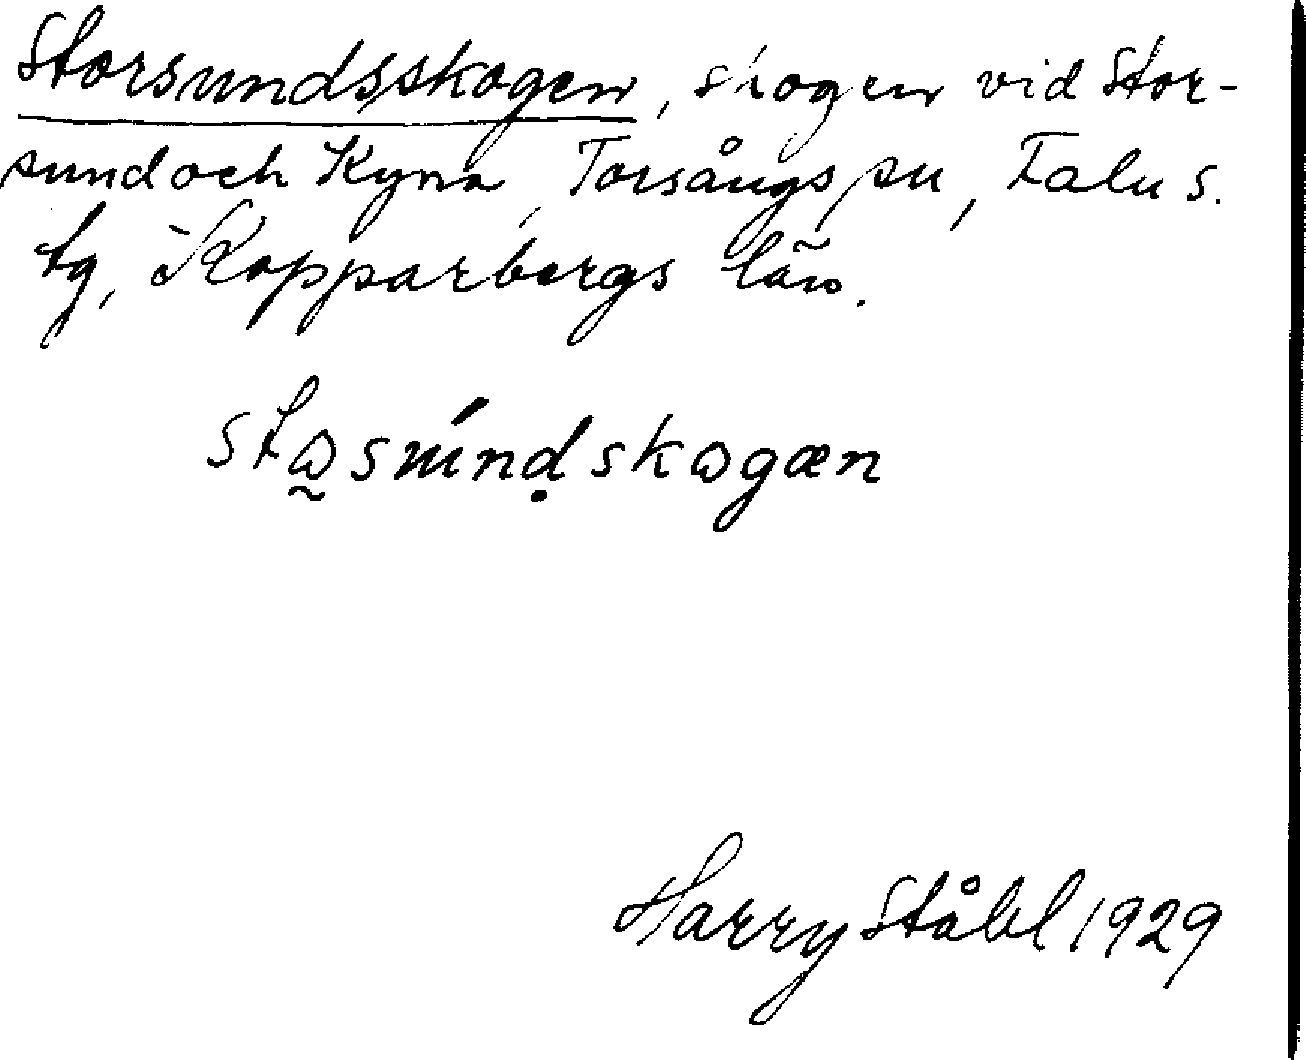 Storsundsskogen, skogen vid Stor-
sund och Kyna, Torsångs sn, Falu s.
tg, Kopparbergs län.
stωsuńdskωgæn
Harry Ståhl 1929